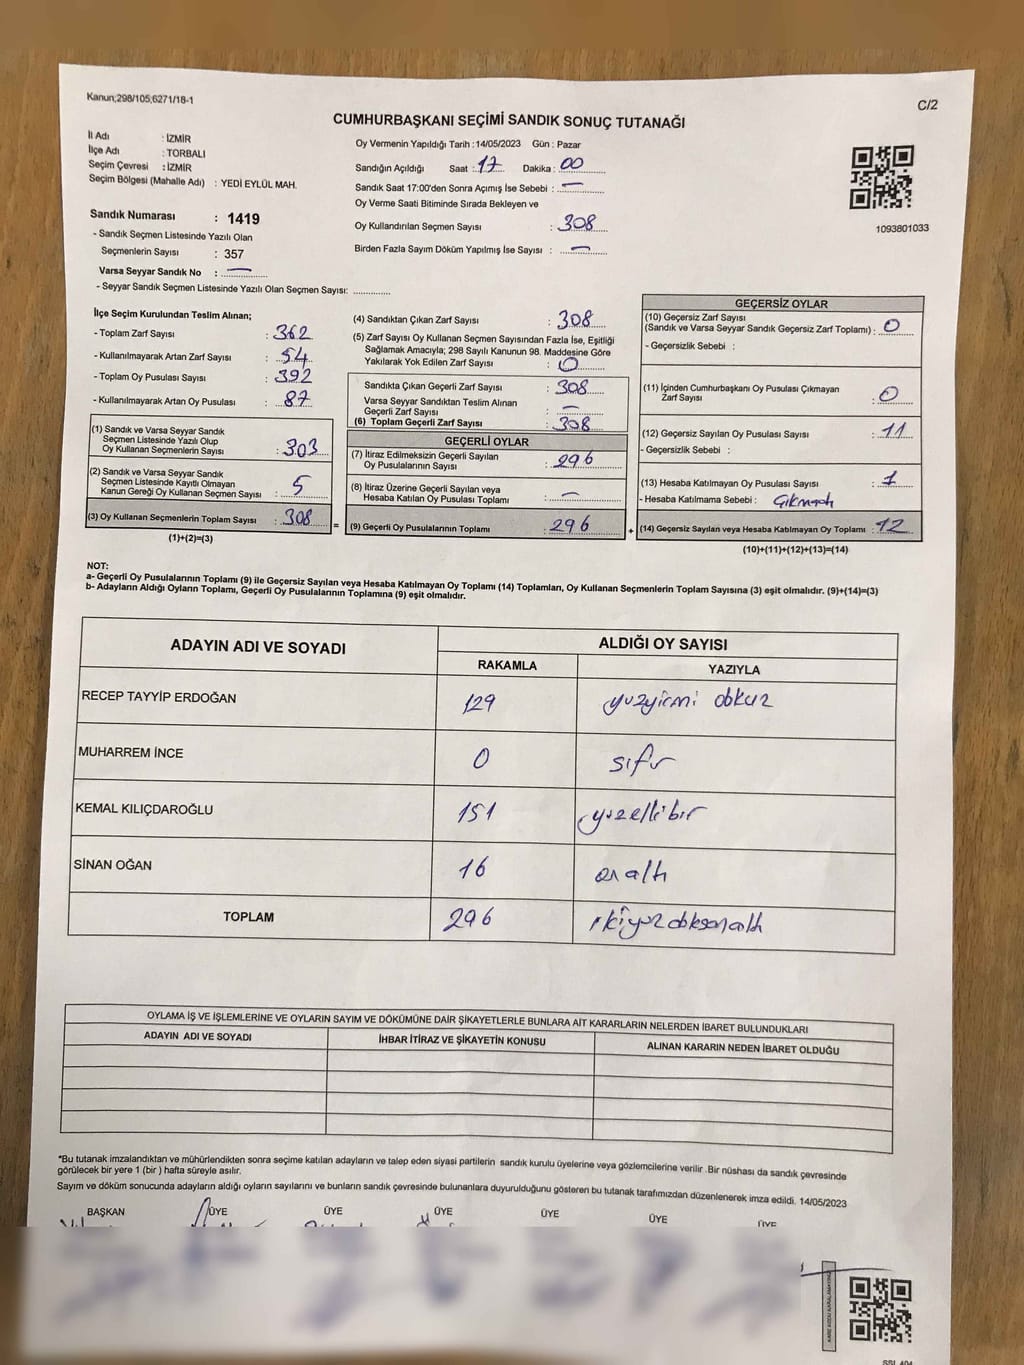 Kanun;298/105;6271/18-1
C/2
CUMHURBAŞKANI SEÇİMİ SANDIK SONUÇ TUTANAĞI
İl Adı : İZMİR
İlçe Adı : TORBALI
Seçim Çevresi : İZMİR
Seçim Bölgesi (Mahalle Adı) : YEDİ EYLÜL MAH.
Sandık Numarası : 1419
- Sandık Seçmen Listesinde Yazılı Olan
Seçmenlerin Sayısı : 357
Varsa Seyyar Sandık No : —
- Seyyar Sandık Seçmen Listesinde Yazılı Olan Seçmen Sayısı: ..............
Oy Vermenin Yapıldığı Tarih :14/05/2023 Gün : Pazar
Sandığın Açıldığı Saat : 17 Dakika : 00
Sandık Saat 17:00'den Sonra Açımış İse Sebebi : —
Oy Verme Saati Bitiminde Sırada Bekleyen ve
Oy Kullandırılan Seçmen Sayısı : 308
Birden Fazla Sayım Döküm Yapılmış İse Sayısı : —
1093801033
İlçe Seçim Kurulundan Teslim Alınan;
- Toplam Zarf Sayısı : 362
- Kullanılmayarak Artan Zarf Sayısı : 54
- Toplam Oy Pusulası Sayısı : 392
- Kullanılmayarak Artan Oy Pusulası : 87
(1) Sandık ve Varsa Seyyar Sandık
Seçmen Listesinde Yazılı Olup
Oy Kullanan Seçmenlerin Sayısı : 303
(2) Sandık ve Varsa Seyyar Sandık
Seçmen Listesinde Kayıtlı Olmayan
Kanun Gereği Oy Kullanan Seçmen Sayısı : 5
(3) Oy Kullanan Seçmenlerin Toplam Sayısı : 308
(1)+(2)=(3)
(4) Sandıktan Çıkan Zarf Sayısı : 308
(5) Zarf Sayısı Oy Kullanan Seçmen Sayısından Fazla İse, Eşitliği
Sağlamak Amacıyla; 298 Sayılı Kanunun 98. Maddesine Göre
Yakılarak Yok Edilen Zarf Sayısı : 0
Sandıkta Çıkan Geçerli Zarf Sayısı : 308
Varsa Seyyar Sandıktan Teslim Alınan
Geçerli Zarf Sayısı : —
(6) Toplam Geçerli Zarf Sayısı : 308
GEÇERLİ OYLAR
(7) İtiraz Edilmeksizin Geçerli Sayılan
Oy Pusulalarının Sayısı : 296
(8) İtiraz Üzerine Geçerli Sayılan veya
Hesaba Katılan Oy Pusulası Toplamı : —
= (9) Geçerli Oy Pusulalarının Toplamı : 296
GEÇERSİZ OYLAR
(10) Geçersiz Zarf Sayısı
(Sandık ve Varsa Seyyar Sandık Geçersiz Zarf Toplamı) : 0
- Geçersizlik Sebebi :
(11) İçinden Cumhurbaşkanı Oy Pusulası Çıkmayan
Zarf Sayısı : 0
(12) Geçersiz Sayılan Oy Pusulası Sayısı : 11
- Geçersizlik Sebebi :
(13) Hesaba Katılmayan Oy Pusulası Sayısı : 1
- Hesaba Katılmama Sebebi :
+ (14) Geçersiz Sayılan veya Hesaba Katılmayan Oy Toplamı : 12
(10)+(11)+(12)+(13)=(14)
NOT:
a- Geçerli Oy Pusulalarının Toplamı (9) ile Geçersiz Sayılan veya Hesaba Katılmayan Oy Toplamı (14) Toplamları, Oy Kullanan Seçmenlerin Toplam Sayısına (3) eşit olmalıdır. (9)+(14)=(3)
b- Adayların Aldığı Oyların Toplamı, Geçerli Oy Pusulalarının Toplamına (9) eşit olmalıdır.
ADAYIN ADI VE SOYADI ALDIĞI OY SAYISI
RAKAMLA YAZIYLA
RECEP TAYYİP ERDOĞAN 129 yüzyirmi dokuz
MUHARREM İNCE 0 sıfır
KEMAL KILIÇDAROĞLU 151 yüzellibir
SİNAN OĞAN 16 onaltı
TOPLAM 296 ikiyüzdoksanaltı
OYLAMA İŞ VE İŞLEMLERİNE VE OYLARIN SAYIM VE DÖKÜMÜNE DAİR ŞİKAYETLERLE BUNLARA AİT KARARLARIN NELERDEN İBARET BULUNDUKLARI
ADAYIN ADI VE SOYADI İHBAR İTİRAZ VE ŞİKAYETİN KONUSU ALINAN KARARIN NEDEN İBARET OLDUĞU
*Bu tutanak imzalandıktan ve mühürlendikten sonra seçime katılan adayların ve talep eden siyasi partilerin sandık kurulu üyelerine veya gözlemcilerine verilir .Bir nüshası da sandık çevresinde
görülecek bir yere 1 (bir ) hafta süreyle asılır.
Sayım ve döküm sonucunda adayların aldığı oyların sayılarını ve bunların sandık çevresinde bulunanlara duyurulduğunu gösteren bu tutanak tarafımızdan düzenlenerek imza edildi. 14/05/2023
BAŞKAN ÜYE ÜYE ÜYE ÜYE ÜYE ÜYE